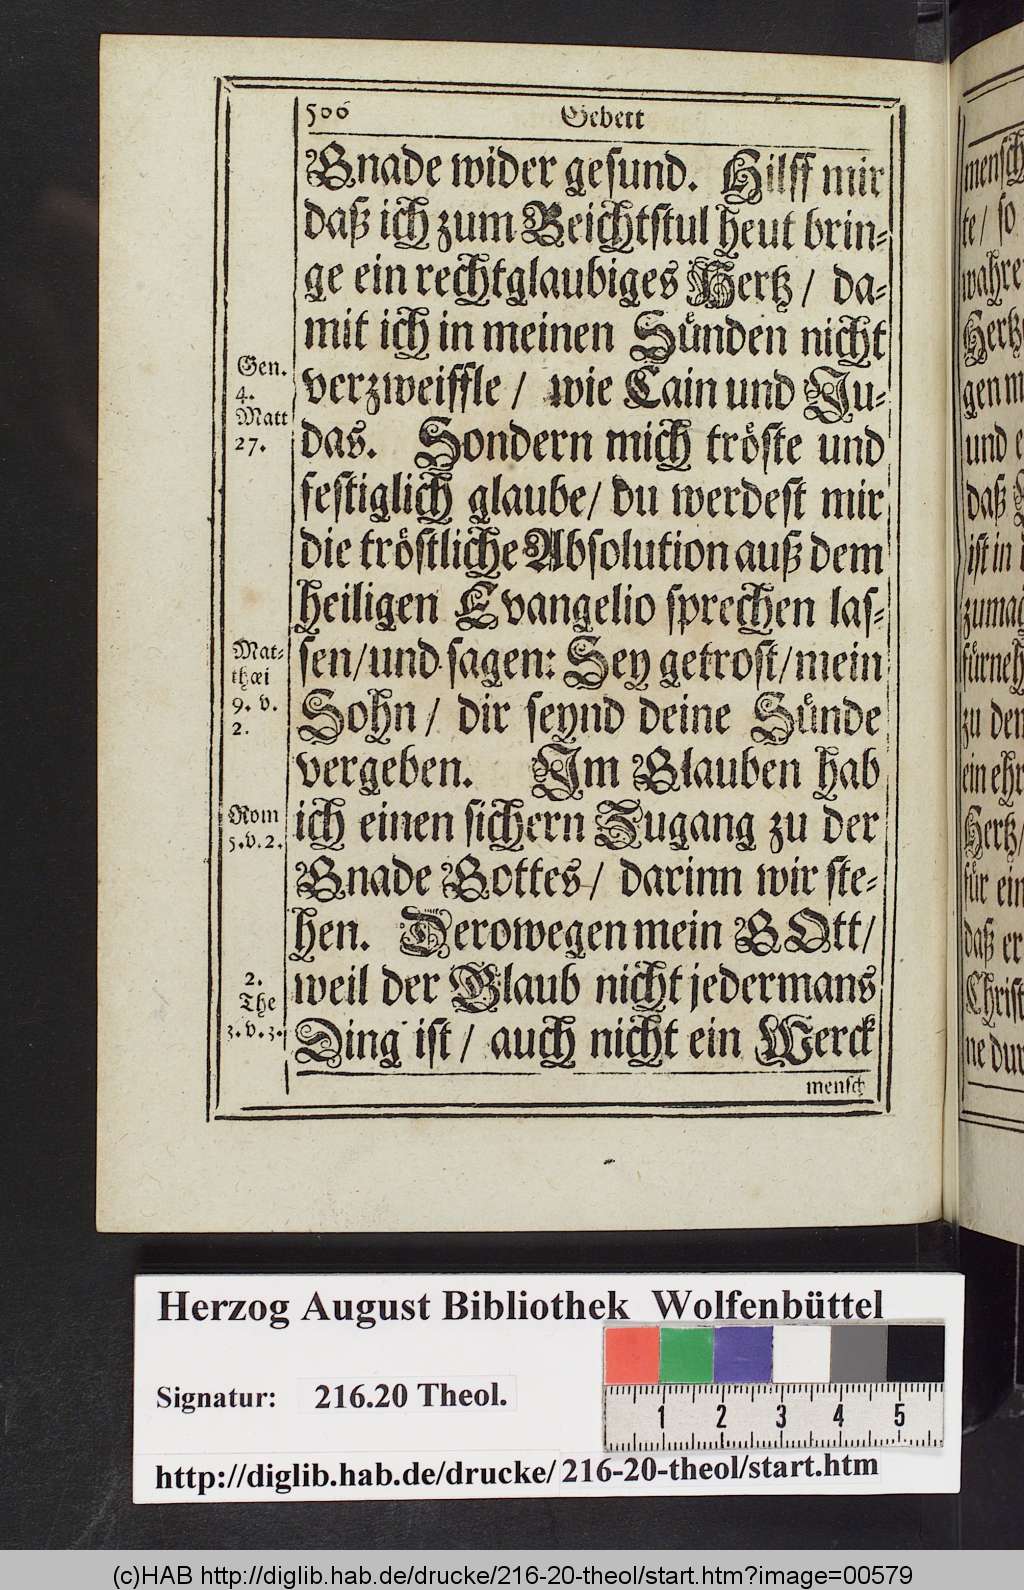 506 Gebett
Gnade wider gesund. Hilff mir
daß ich zum Beichtstul heut brin-
ge ein rechtglaubiges Hertz / da-
mit ich in meinen Sünden nicht
Gen.
4.
Matt
27.
verzweiffle / wie Cain und Ju-
das. Sondern mich tröste und
festiglich glaube / du werdest mir
die tröstliche Absolution auß dem
heiligen Evangelio sprechen las-
Mat-
thæi
9. v.
2.
sen / und sagen: Sey getrost / mein
Sohn / dir seynd deine Sünde
vergeben. Im Glauben hab
Rom
5. v. 2.
ich einen sichern Zugang zu der
Gnade Gottes / darinn wir ste-
hen. Derowegen mein GOtt /
2.
The
3. v. 3.
weil der Glaub nicht jedermans
Ding ist / auch nicht ein Werck
mensch
mensch
te / so
wahre
Hertz
gen m
und e
daß
ist in
zumac
fürneh
zu den
ein ehr
Hertz /
für ein
daß er
Christ
ne dur
Herzog August Bibliothek Wolfenbüttel
Signatur: 216.20 Theol.
1 2 3 4 5
http://diglib.hab.de/drucke/216-20-theol/start.htm
(c)HAB http://diglib.hab.de/drucke/216-20-theol/start.htm?image=00579